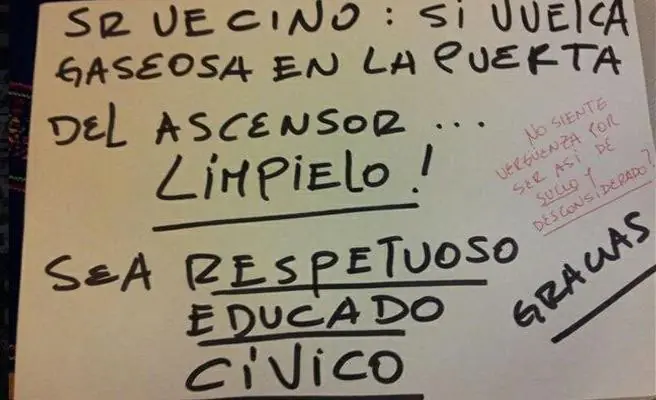 SR VECINO: SI VUELCA
GASEOSA EN LA PUERTA
DEL ASCENSOR...
LÍMPIELO!
SEA RESPETUOSO
EDUCADO
CÍVICO
NO SIENTE
VERGÜENZA POR
SER ASÍ DE
SUCIO Y
DESCONSIDERADO?
GRACIAS